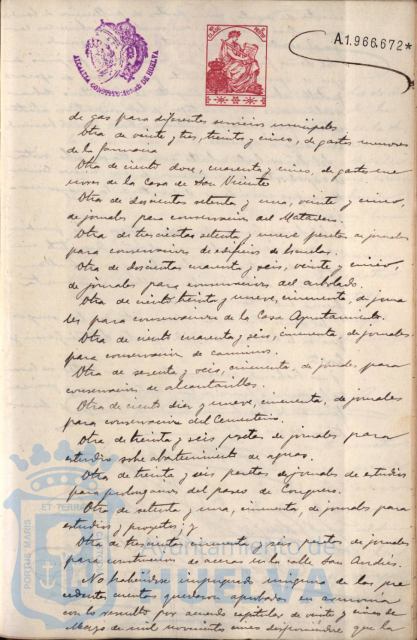 ALCALDIA CONSTITUCIONAL DE HUELVA
A.1.966.672*
de gas para diferentes servicios municipales
Otra de veinte y tres, treinta y cinco, de gastos menores
de la farmacia
Otra de ciento doce, cuarenta y cinco, de gastos me-
nores de la Casa de San Vicente
Otra de doscientas setenta y una, veinte y cinco,
de jornales para conservacion del Matadero.
Otra de trescientas setenta y nueve pesetas de jornales
para conservacion de edificios de Escuelas.
Otra de doscientas cuarenta y seis, veinte y cinco,
de jornales para conservacion del arbolado.
Otra de ciento treinta y nueve, cincuenta, de jorna
les para conservacion de la Casa Ayuntamiento.
Otra de ciento cuarenta y seis, cincuenta, de jornales
para conservacion de caminos.
Otra de sesenta y seis, cincuenta, de jornales para
conservacion de alcantarillas.
Otra de ciento diez y nueve, cincuenta, de jornales
para conservacion del Cementerio.
Otra de treinta y seis pesetas de jornales para
estudio sobre abastecimiento de aguas.
Otra de treinta y seis pesetas de jornales de estudios
para prolongacion del paseo de
Otra de setenta y una, cincuenta, de jornales para
estudios y proyectos; y
Otra de trescientas cincuenta y seis pesetas de jornales
para construccion de acera en la calle San Andrés.
No habiendose impugnado ninguna de las pre
cedentes cuentas quedaron aprobadas en armonia
con lo resuelto por acuerdo capitular de veinte y cinco de
Marzo de mil novecientos cinco disponiendo que la
PORTUS MARIS
ET TERRAE
Ayuntamiento de
HUELVA